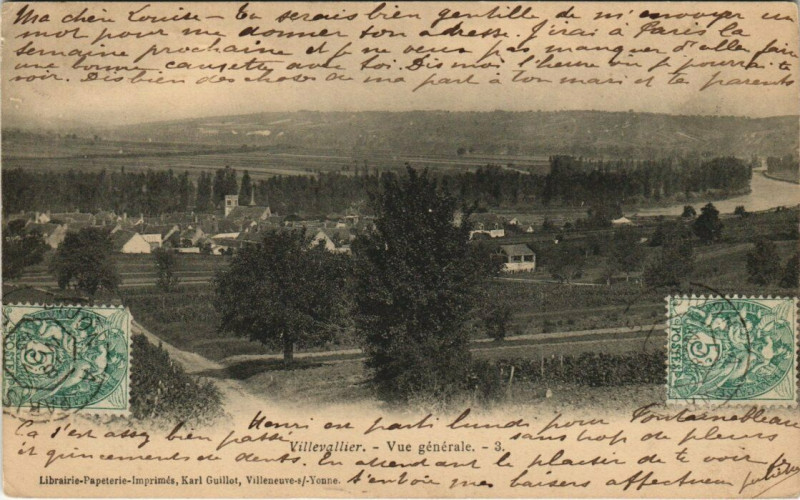 Ma chère Louise - Tu serais bien gentille de m'envoyer un
mot pour me donner ton adresse. J'irai à Paris la
semaine prochaine et je ne veux pas manquer d'aller faire
une bonne causette avec toi. Dis moi l'heure où je pourrai te
voir. Dis bien des choses de ma part à ton mari et te parents
POSTES
5
POSTES
5
Henri est parti lundi pour Fontainebleau
Ça s'est assez bien passé sans trop de pleurs
Villevallier. - Vue générale. - 3.
et grincements de dents. En attendant le plaisir de te voir je
Librairie-Papeterie-Imprimés, Karl Guillot, Villeneuve-s/-Yonne.
t'envoie mes baisers affectueux Juliette